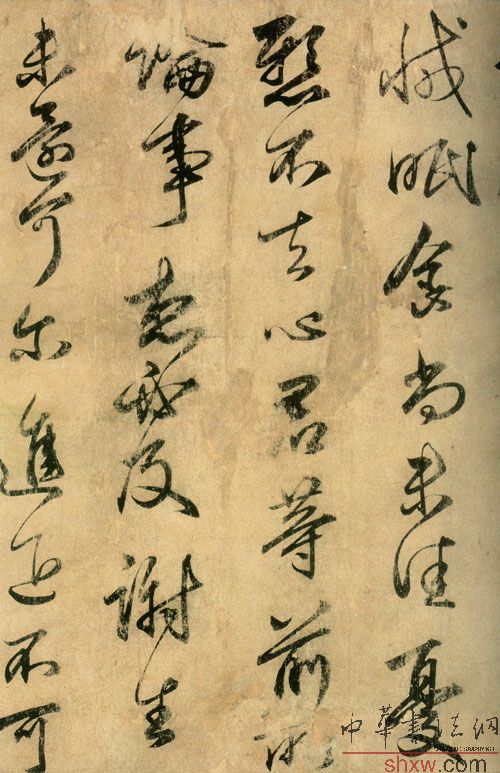 減眠食尚未佳憂
懸不去心君等前所
論事及謝生
未還可尔進退不可
中華書法網
shxw.com